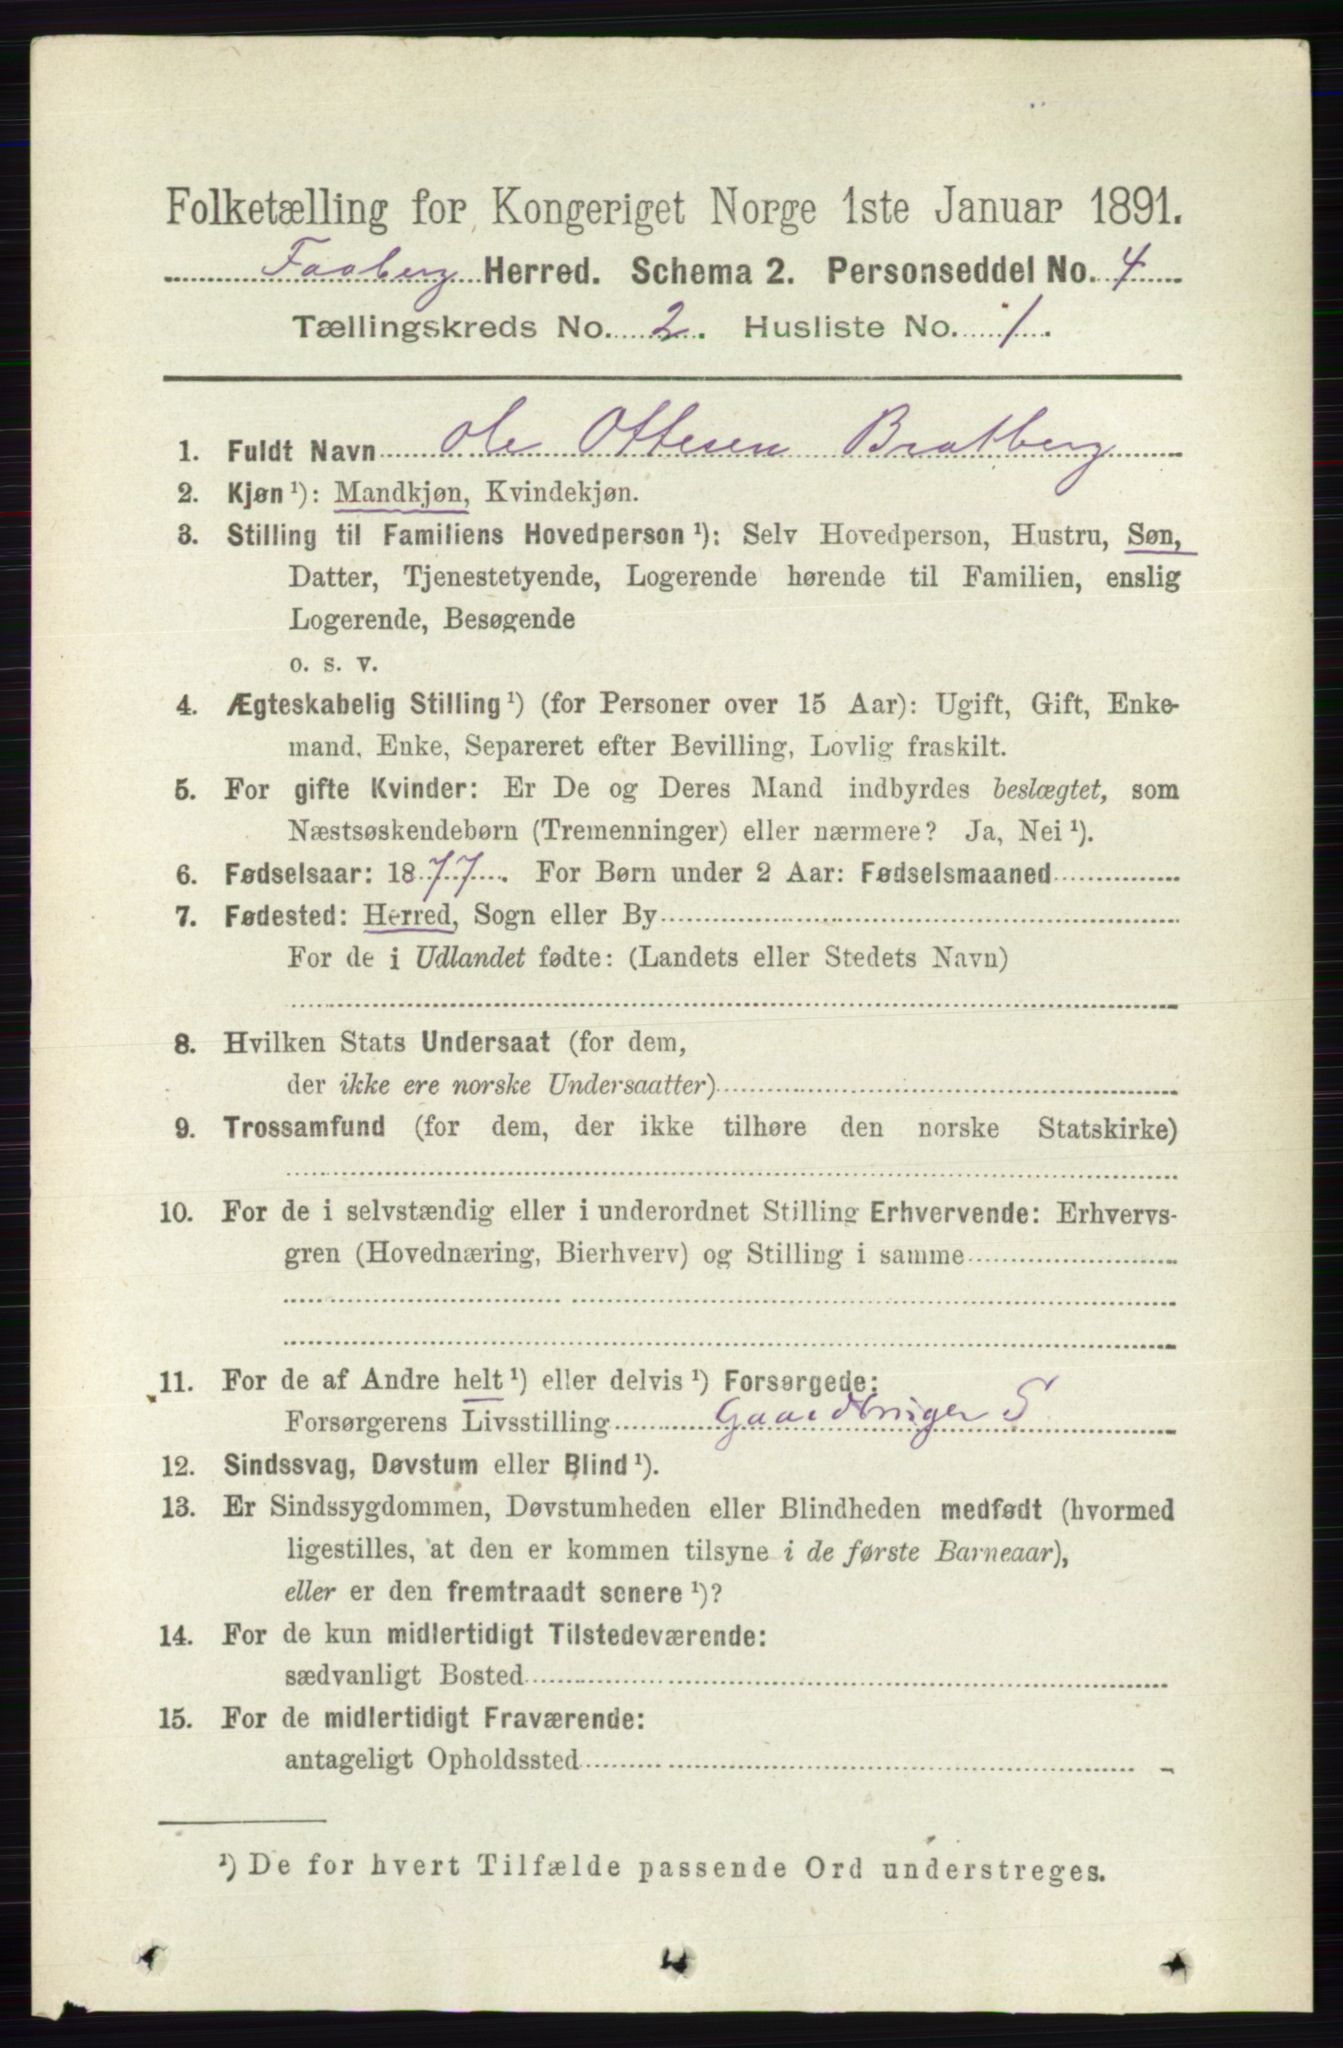 Folketælling for Kongeriget Norge 1ste Januar 1891.
Faaberg Herred. Schema 2. Personseddel No. 4
Tællingskreds No. 2. Husliste No. 1.
1. Fuldt Navn Ole Ottesen Bratberg
2. Kjøn ¹): Mandkjøn, Kvindekjøn.
3. Stilling til Familiens Hovedperson ¹): Selv Hovedperson, Hustru, Søn,
Datter, Tjenestetyende, Logerende hørende til Familien, enslig
Logerende, Besøgende
o. s. v.
4. Ægteskabelig Stilling ¹) (for Personer over 15 Aar): Ugift, Gift, Enke-
mand, Enke, Separeret efter Bevilling, Lovlig fraskilt.
5. For gifte Kvinder: Er De og Deres Mand indbyrdes beslægtet, som
Næstsøskendebørn (Tremenninger) eller nærmere? Ja, Nei ¹).
6. Fødselsaar: 1877. For Børn under 2 Aar: Fødselsmaaned
7. Fødested: Herred, Sogn eller By
For de i Udlandet fødte: (Landets eller Stedets Navn)
8. Hvilken Stats Undersaat (for dem,
der ikke ere norske Undersaatter)
9. Trossamfund (for dem, der ikke tilhøre den norske Statskirke)
10. For de i selvstændig eller i underordnet Stilling Erhvervende: Erhvervs-
gren (Hovednæring, Bierhverv) og Stilling i samme
11. For de af Andre helt ¹) eller delvis ¹) Forsørgede:
Forsørgerens Livsstilling Gaardbruger S
12. Sindssvag, Døvstum eller Blind ¹).
13. Er Sindssygdommen, Døvstumheden eller Blindheden medfødt (hvormed
ligestilles, at den er kommen tilsyne i de første Barneaar),
eller er den fremtraadt senere ¹)?
14. For de kun midlertidigt Tilstedeværende:
sædvanligt Bosted
15. For de midlertidigt Fraværende:
antageligt Opholdssted
¹) De for hvert Tilfælde passende Ord understreges.